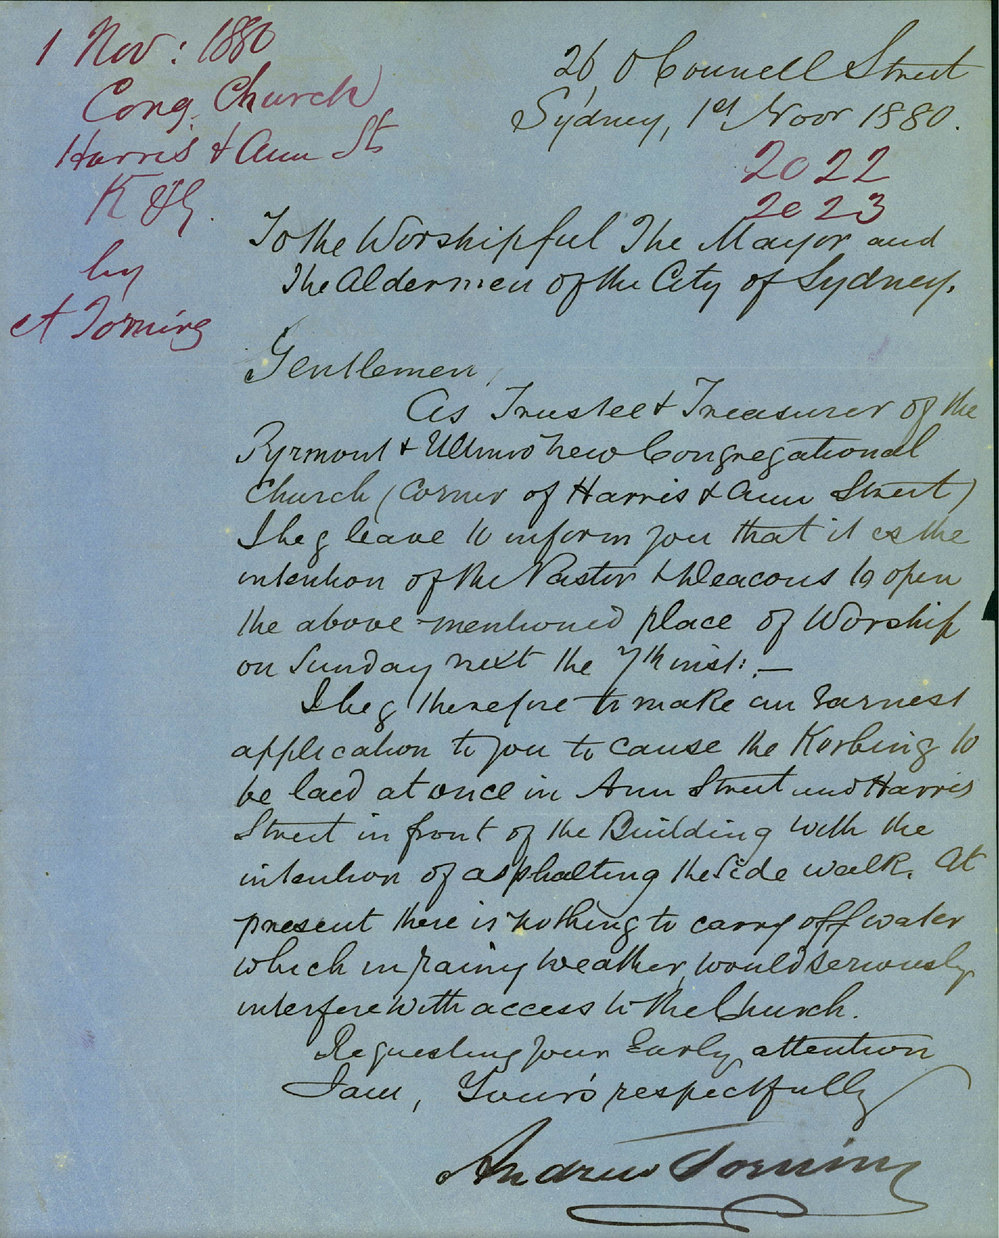 1 Nov: 1880
Cong. Church
Harris & Ann Sts
K & G
by
A Torning
26 O'Connell Street
Sydney, 1st Novr 1880.
2022
2023
To the Worshipful The Mayor and
The Aldermen of the City of Sydney.
Gentlemen,
As Trustee & Treasurer of the
Pyrmont & Ultimo New Congregational
Church (Corner of Harris & Ann Street)
I beg leave to inform you that it is the
intention of the Pastor & Deacons to open
the above-mentioned place of Worship
on Sunday next the 7th inst: —
I beg therefore to make an Earnest
application to you to cause the Kerbing to
be laid at once in Ann Street and Harris
Street in front of the Building with the
intention of asphalting the side walk. At
present there is nothing to carry off water
which in rainy weather, would seriously
interfere with access to the Church.
Requesting your Early attention
I am, Your's respectfully
Andrew Torning